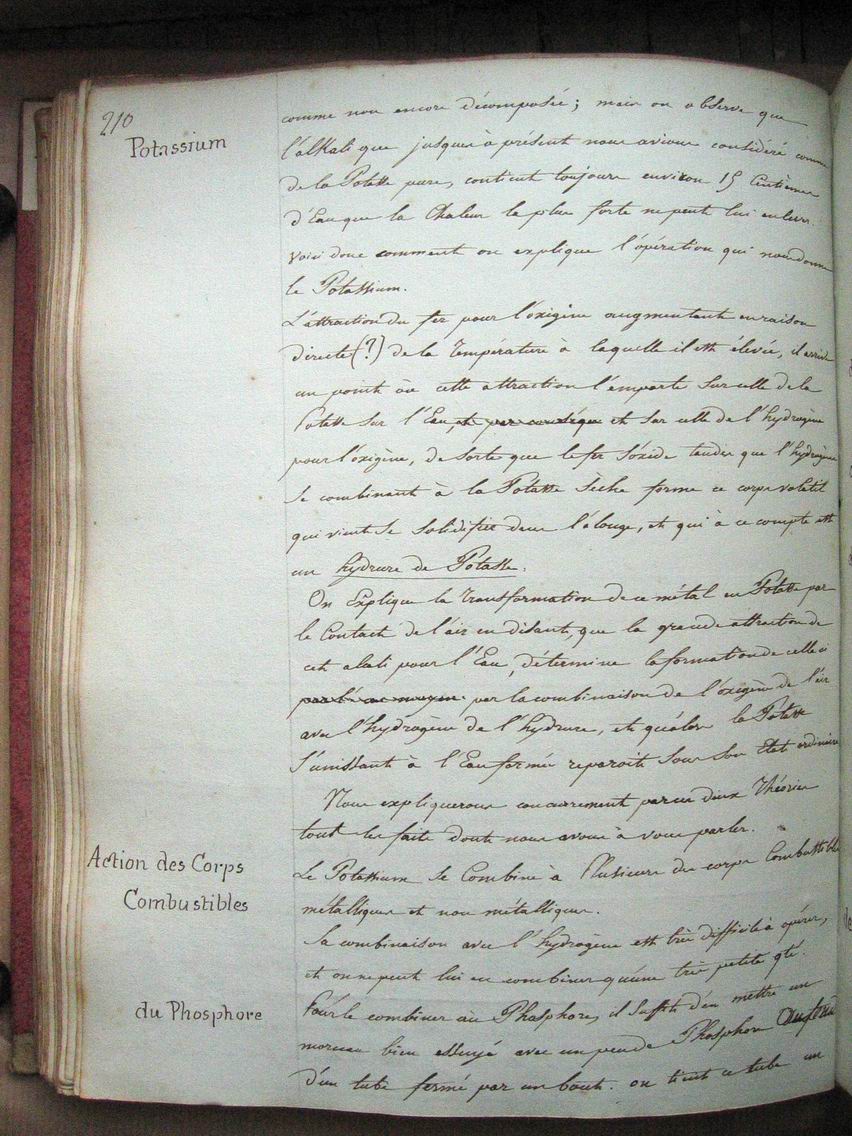 210
Potassium
comme non encore décomposée; mais on observe que
l'alkali que jusques à présent nous avions considéré comme
de la Potasse pure, contient toujours environ 15 Centièmes
d'Eau que la Chaleur la plus forte ne peut lui enlever.
Voici donc comment on explique l'opération qui nous donne
le Potassium.
L'attraction du fer pour l'oxigène augmentant en raison
directe (?) de la Température à laquelle il est élevé, il arrive
un point où cette attraction l'emporte sur celle de la
Potasse sur l'Eau, et par conséque et sur celle de l'hydrogène
pour l'oxigène, de sorte que le fer s'oxide tandis que l'hydrogène
se combinant à la Potasse sèche forme ce corps volatil
qui vient se solidifier dans l'alonge, et qui à ce compte est
un hydrure de Potasse.
On Explique la Transformation de ce métal en Potasse par
le Contact de l'air en disant, que la grande attraction de
cet alcali pour l'Eau, détermine la formation de celle ci
par la combinaison de l'oxigène de l'air
avec l'hydrogène de l'hydrure, et qu'alors la Potasse
s'unissant à l'Eau formée reparoit sous son Etat ordinaire
Nous expliquerons concurremment par ces deux Théories
tous les faits dont nous avons à vous parler.
Action des Corps
Combustibles
Le Potassium se Combine à Plusieurs des corps Combustibles
métalliques et non métalliques.
Sa combinaison avec l'hydrogène est très difficile à opérer,
et on ne peut lui en combiner qu'une très petite qté.
du Phosphore
Pour le combiner au Phosphore, il suffit d'en mettre un
morceau bien essuyé avec un peu de Phosphore au fond
d'un tube fermé par un bout. on tient ce tube un